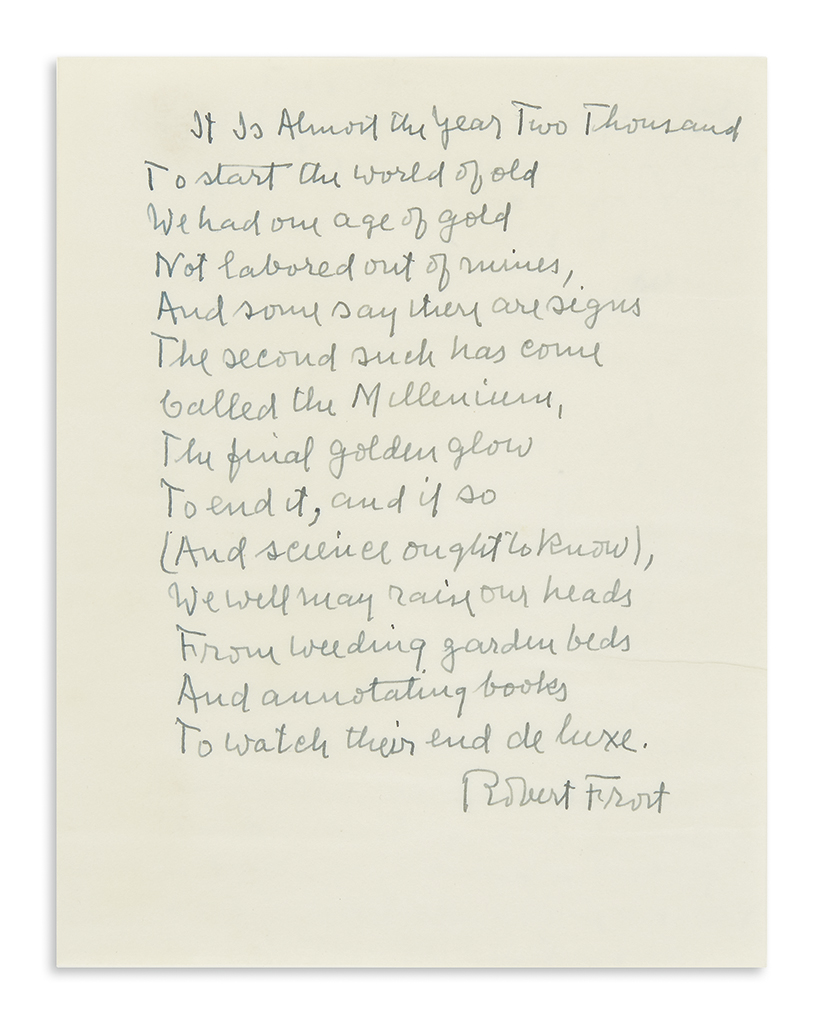 It Is Almost the Year Two Thousand
To start the world of old
We had one age of gold
Not labored out of mines,
And some say there are signs
The second such has come
Called the Millenium,
The final golden glow
To end it, and if so
(And science ought to know),
We well may raise our heads
From weeding garden beds
And annotating books
To watch their end de luxe.
Robert Frost